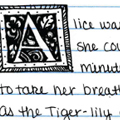 Alice was
she cou
minut
to take her breath
as the Tiger-lily